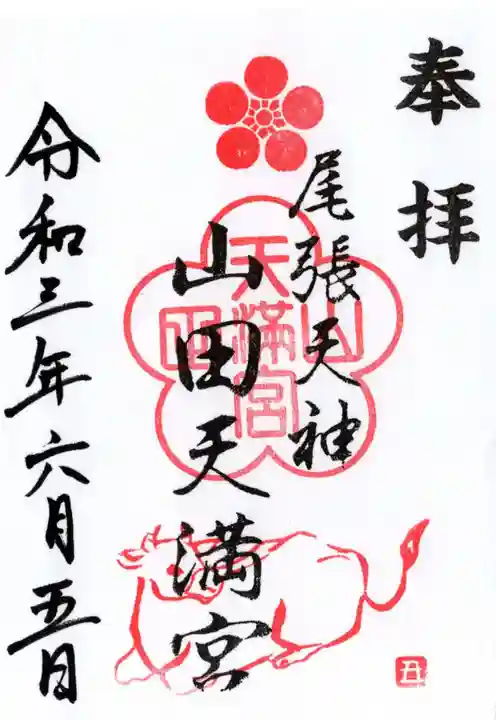 奉拝
尾張天神
山田天満宮
令和三年六月五日
山田
天満宮
丑